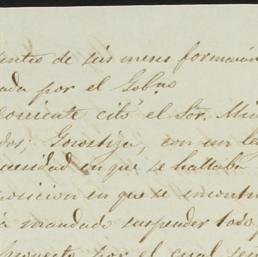 de sus meses formación
ada por el Gobno
corriente citó el Sor. Min
dos; Gorostiza, con un te
cesidad en que se hallaba
posicion en que se encontr
mandado suspender todo p
puesto por el cual se